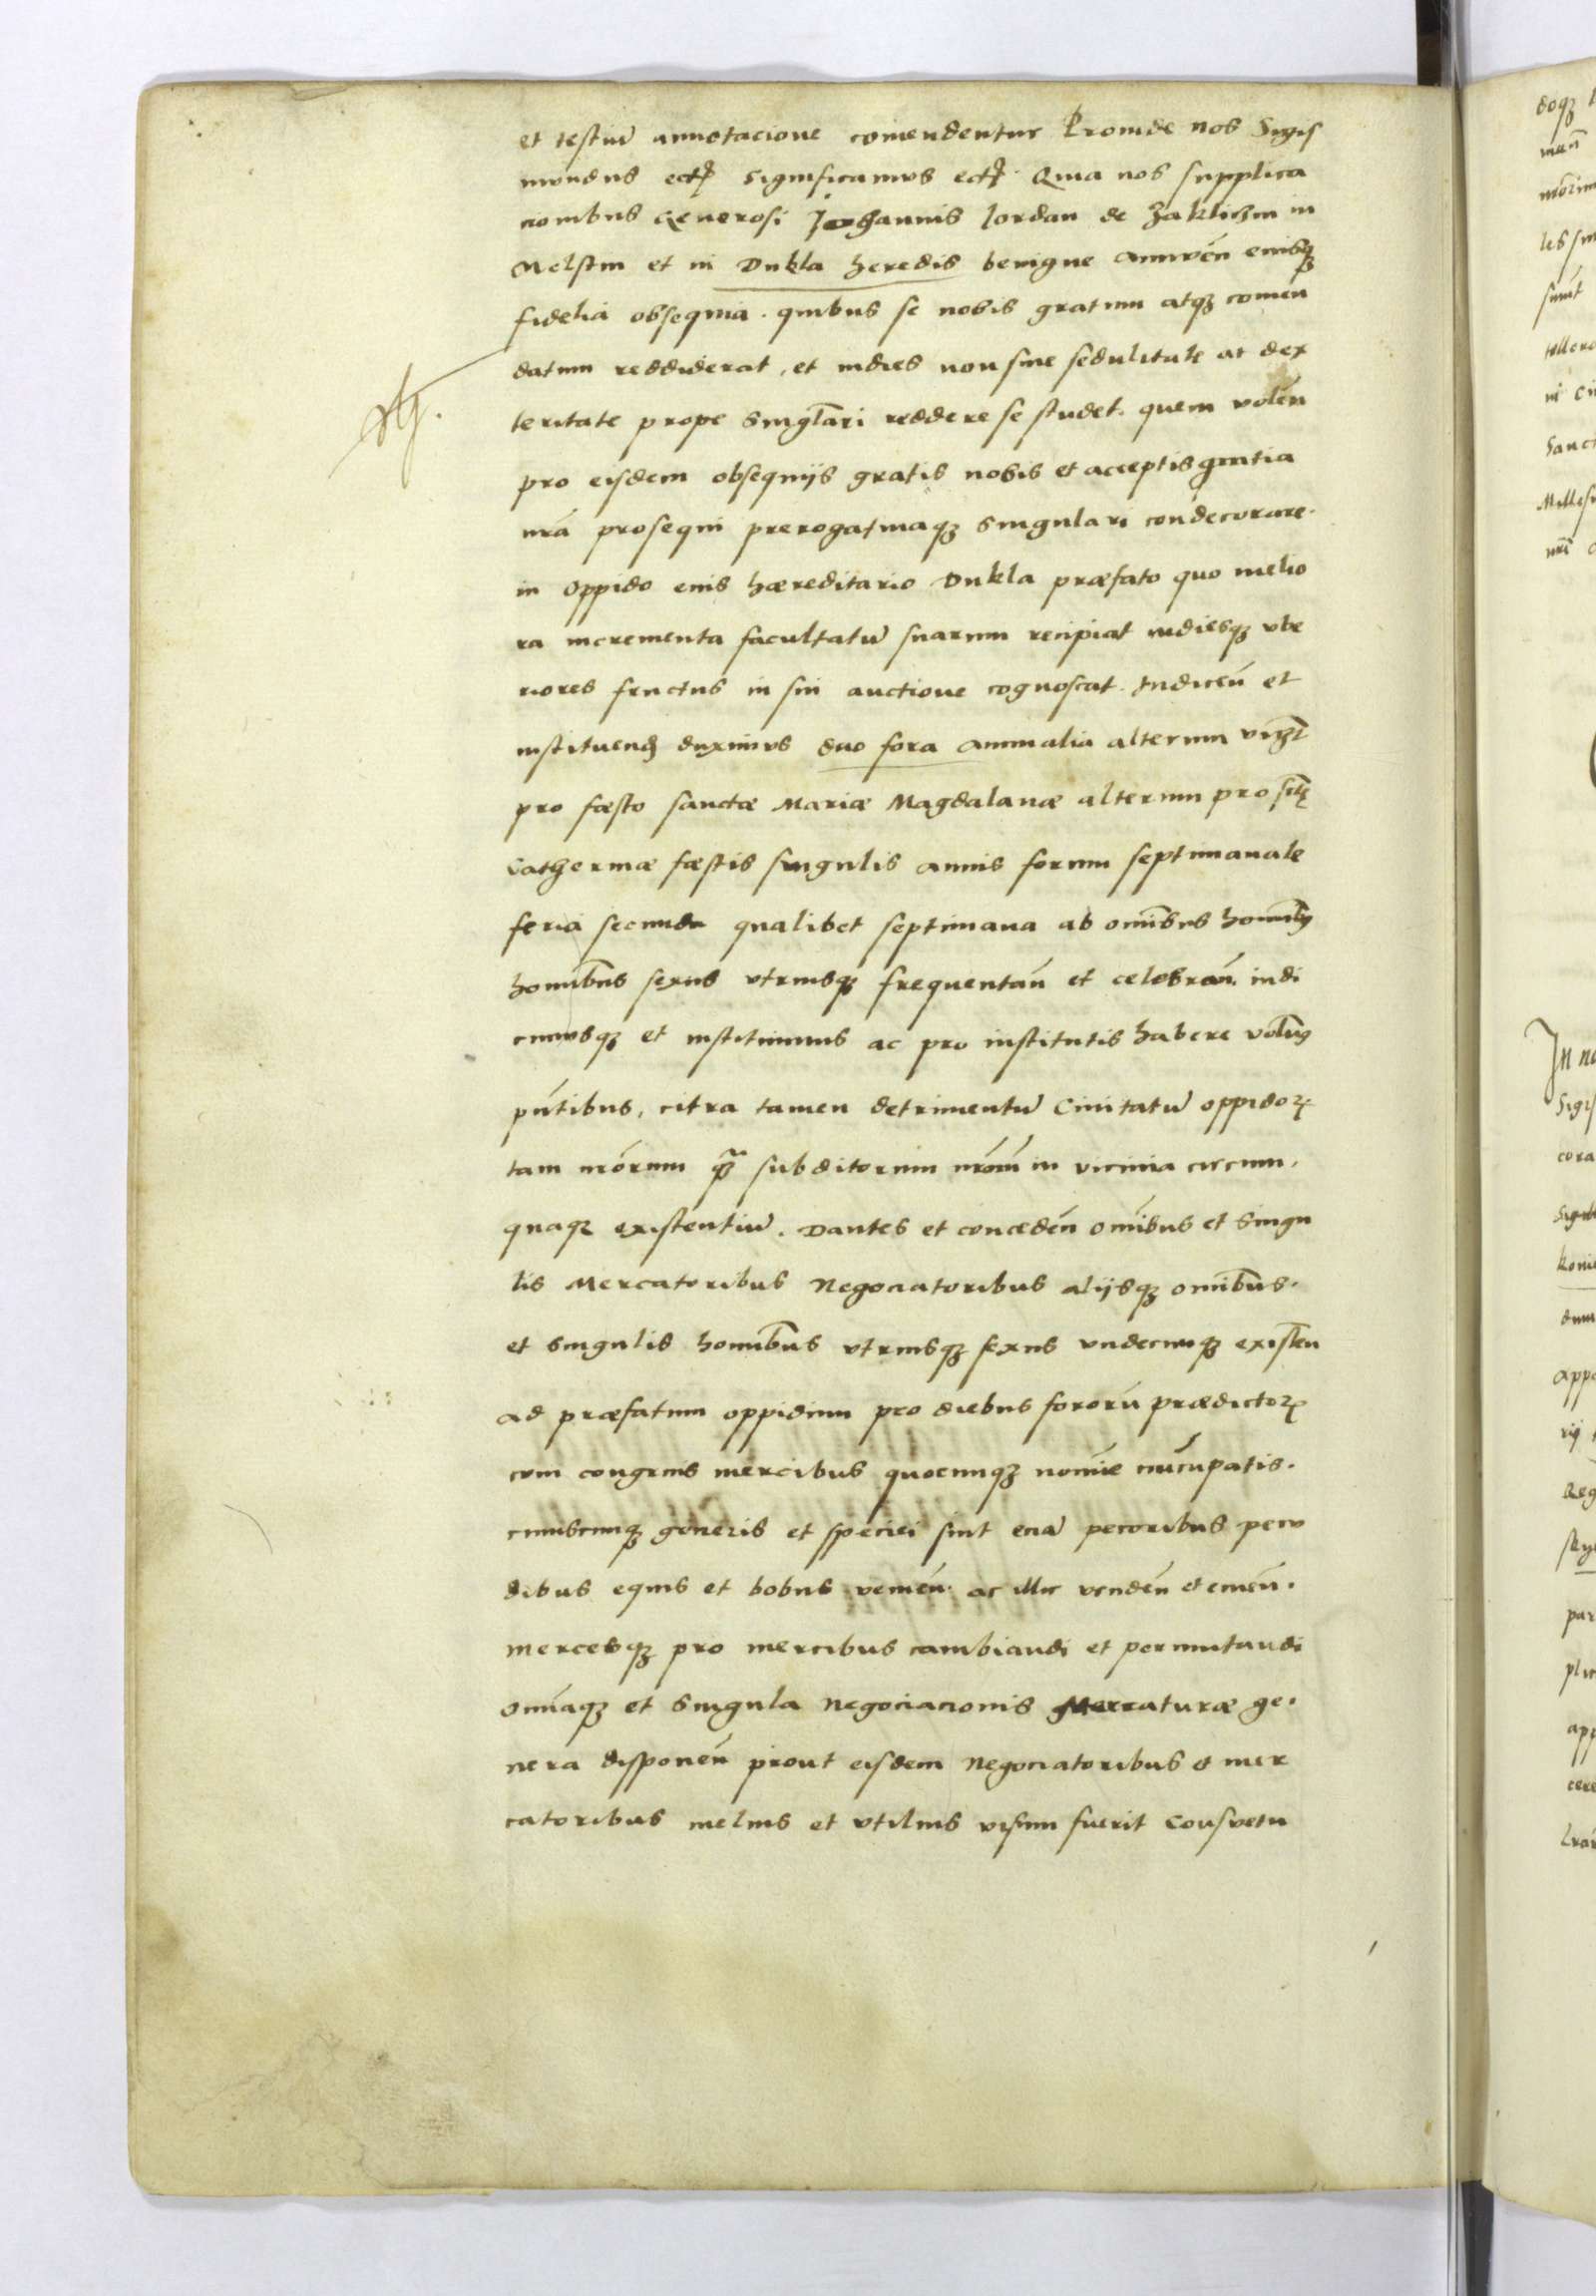 et testiū annotacione comendentur Proinde nos Sigis
mundus ectꝫ significamus ectꝫ Quia nos supplica
cionibus Generosi Johannis Jordan de Zakliczin in
Melstin et in Dukla heredis benigne annuēn eiusqꝫ
fidelia obsequia. quibus se nobis gratum atqꝫ comen
datum reddiderat, et indies non sine sedulitate ac dex
teritate prope singłari reddere se studet. quem volēn
pro eisdem obsequijs gratis nobis et acceptis gratia
nrā prosequi prerogatiuaqꝫ singulari condecorare.
in oppido eius hæreditario Dukla præfato quo melio
ra incrementa facultatū suarum recipiat indiesqꝫ vbe
riores fructus in sui auctione cognoscat. Indicēn et
instituend duximus duo fora annualia alterum vičzt
pro fæsto sanctæ Mariæ Magdalanæ alterum pro sctę
Catherinæ fæstis singulis annis forum septimanale
feria secunda qualibet septimana ab omībus
homībus sexus vtriusqꝫ frequentān et celebrān. indi
cimusqꝫ et instituimus ac pro institutis habere volum9
pn̄tibus, citra tamen detrimentū Ciuitatū oppidoꝝ
tam nrōrum qꝫ subditorum nrōrum in vicinia circum.
quaqꝫ existentiū. Dantes et concædēn omībus et singu
lis Mercatoribus Negociatoribus alijsqꝫ omībus.
et singulis homībus vtriusqꝫ sexus vndecunqꝫ existēn
ad præfatum oppidum pro diebus fororū prædictoꝝ
cum congruis mercibus quocunqꝫ nomīe nuncupatis.
cuiuscunqꝫ generis et speciei sint eciā pecoribus pecu
dibus equis et bobus veniēn. ac illic vendēn et emēn.
mercesqꝫ pro mercibus cambiandi et permutandi
omīaqꝫ et singula Negociacionis Mercaturæ ge.
nera disponēn prout eisdem Negociatoribus & mer
catoribus melius et vtilius visum fuerit Consvetu